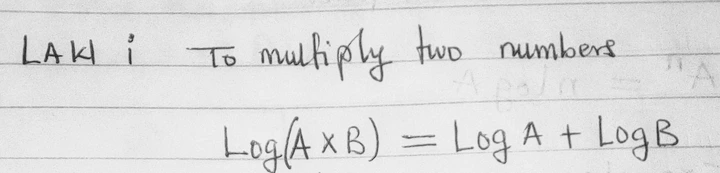 LAW i To multiply two numbers
Log(A x B) = Log A + Log B